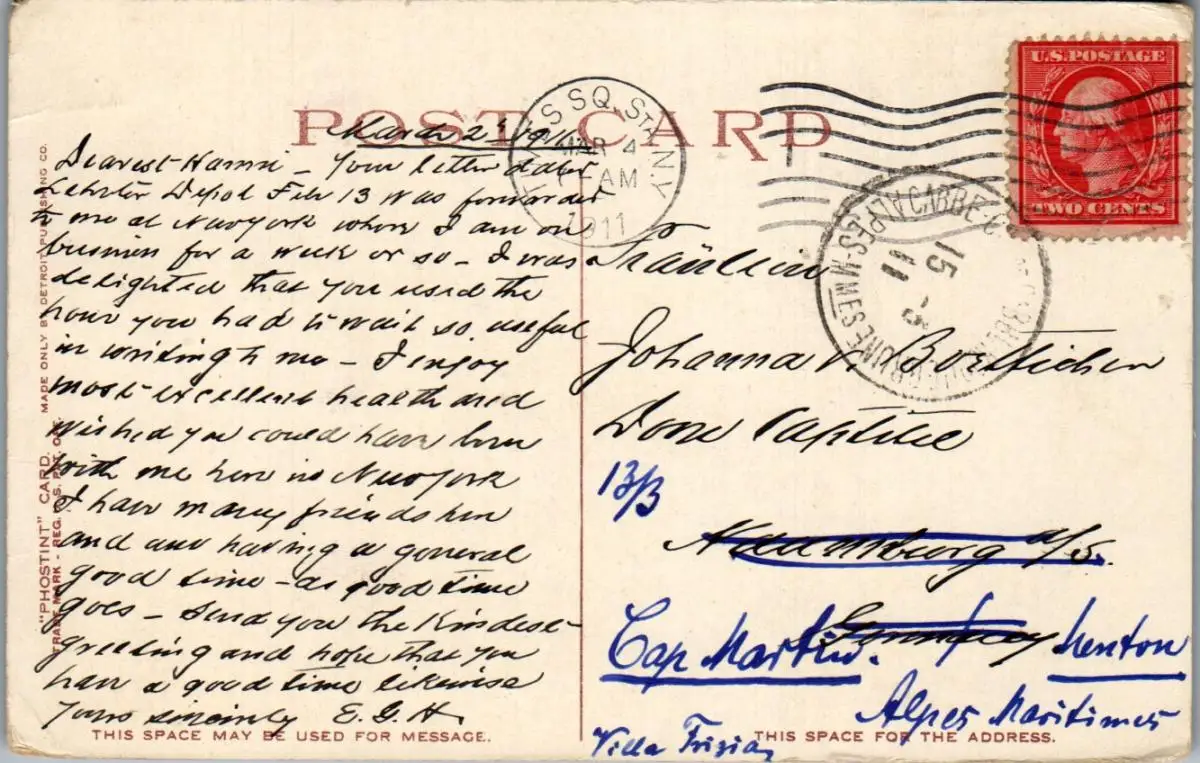 POST CARD
March 2d 1911
Dearest Hanni – Your letter dated
Depot Feb 13 was forwarded
to me at New York where I am on
business for a week or so – I was
delighted that you used the
hour you had to wait so useful
in writing to me – I enjoy
most excellent health and
wished you could have been
with me here in New York
I have many friends here
and am having a general
good time – as good time
goes – Send you the Kindest
greeting and hope that you
have a good time likewise
Yours sincerely E. G. H.
THIS SPACE MAY BE USED FOR MESSAGE.
"PHOSTINT" CARD. MADE ONLY BY DETROIT PUBLISHING CO.
TRADE MARK - REG. U.S. PAT. OFF.
SQ. STA. N.Y
MAR 4
AM
1911
U.S. POSTAGE
TWO CENTS
CARBE
15 -3
11
ALPES-MMES
Fräulein
Johanna v. Boetticher
Dom
13/3
Naumburg a/S.
Germany
Cap Martin. Menton
Alpes Maritimes
Villa
THIS SPACE FOR THE ADDRESS.